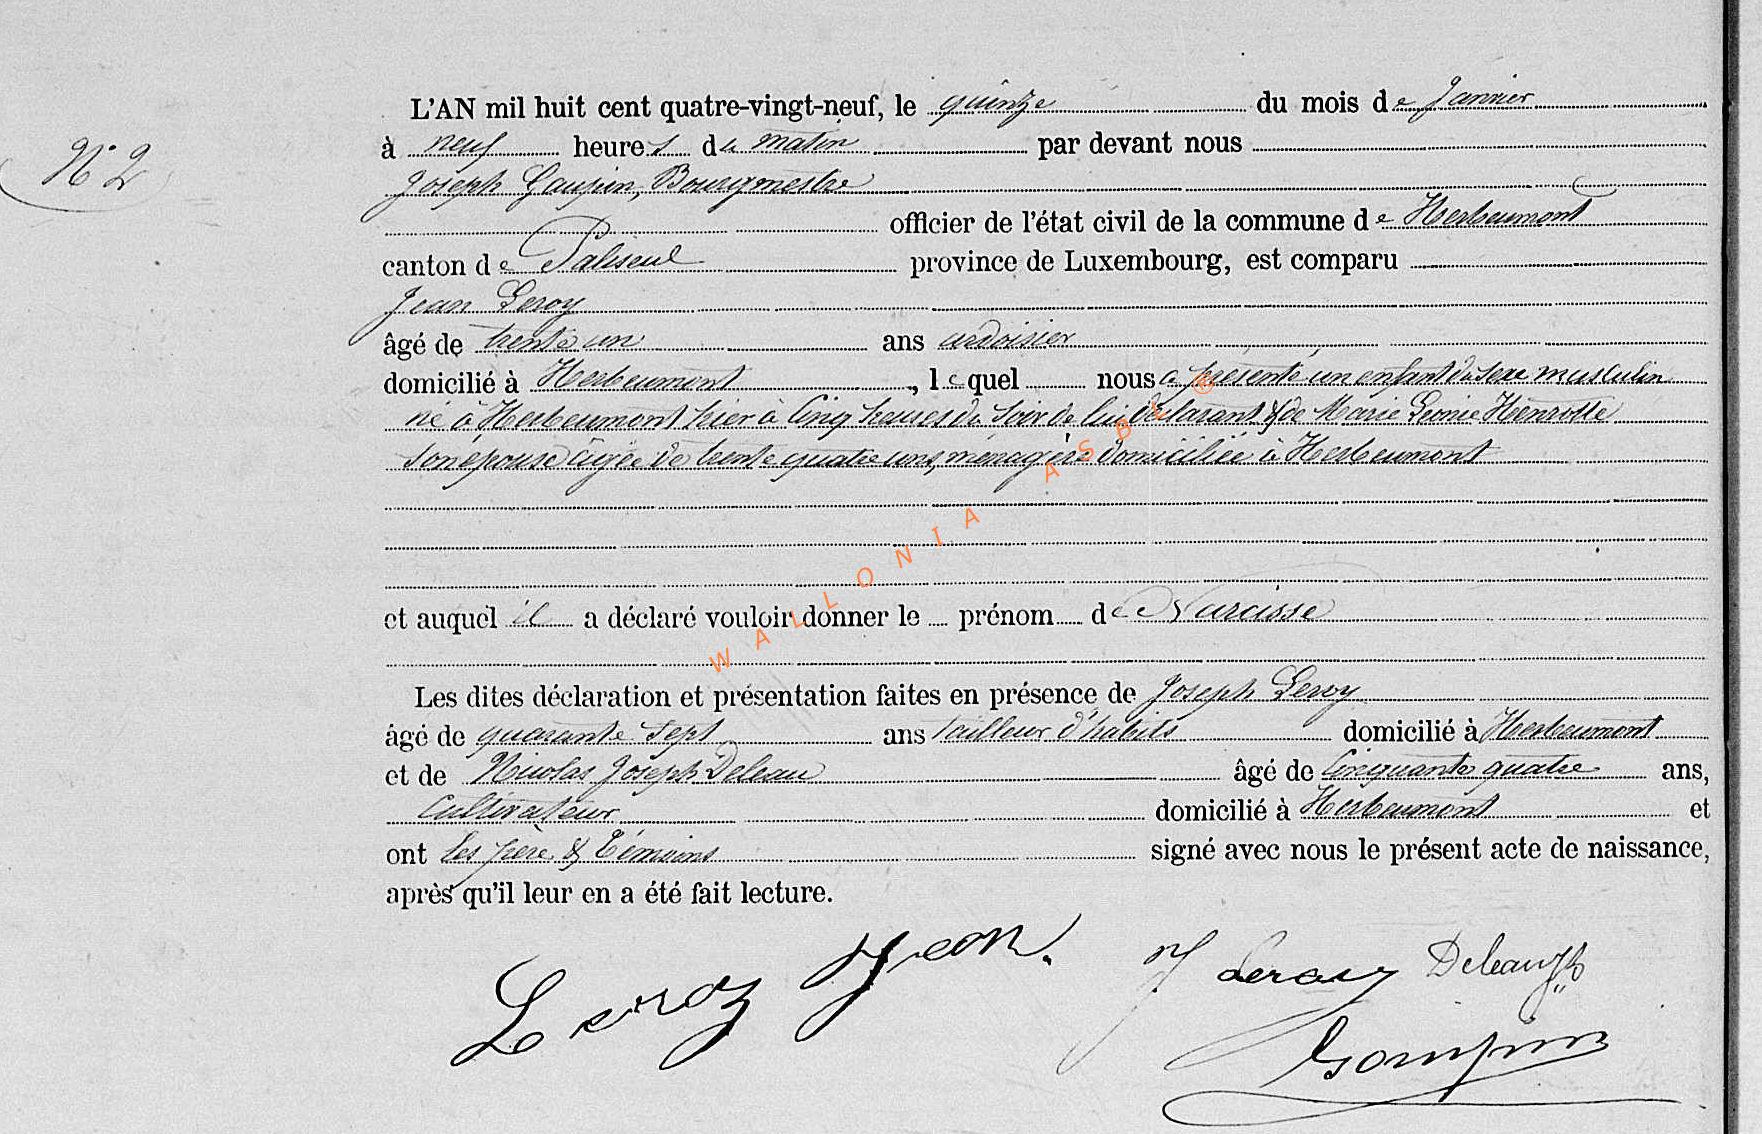 L'AN mil huit cent quatre-vingt-neuf, le quinze du mois de Janvier
N° 2
à neuf heures du matin par devant nous
Joseph Gaupin, Bourgmestre
officier de l'état civil de la commune de Herbeumont
canton de Paliseul province de Luxembourg, est comparu
Jean Leroy
âgé de trente un ans ardoisier
domicilié à Herbeumont, lequel nous a présenté un enfant du sexe masculin
né à Herbeumont hier à Cinq heures du soir de lui déclarant & de Marie Leonie Henrotte
son épouse âgée de trente quatre ans, ménagère domiciliée à Herbeumont
et auquel il a déclaré vouloir donner le prénom de Narcisse
Les dites déclaration et présentation faites en présence de Joseph Leroy
âgé de quarante sept ans tailleur d'habits domicilié à Herbeumont
et de Nicolas Joseph Deleau âgé de Cinquante quatre ans,
Cultivateur domicilié à Herbeumont et
ont les père & témoins signé avec nous le présent acte de naissance,
après qu'il leur en a été fait lecture.
Leroy Jean. J Leroy Deleau
WALLONIA ASBL ®